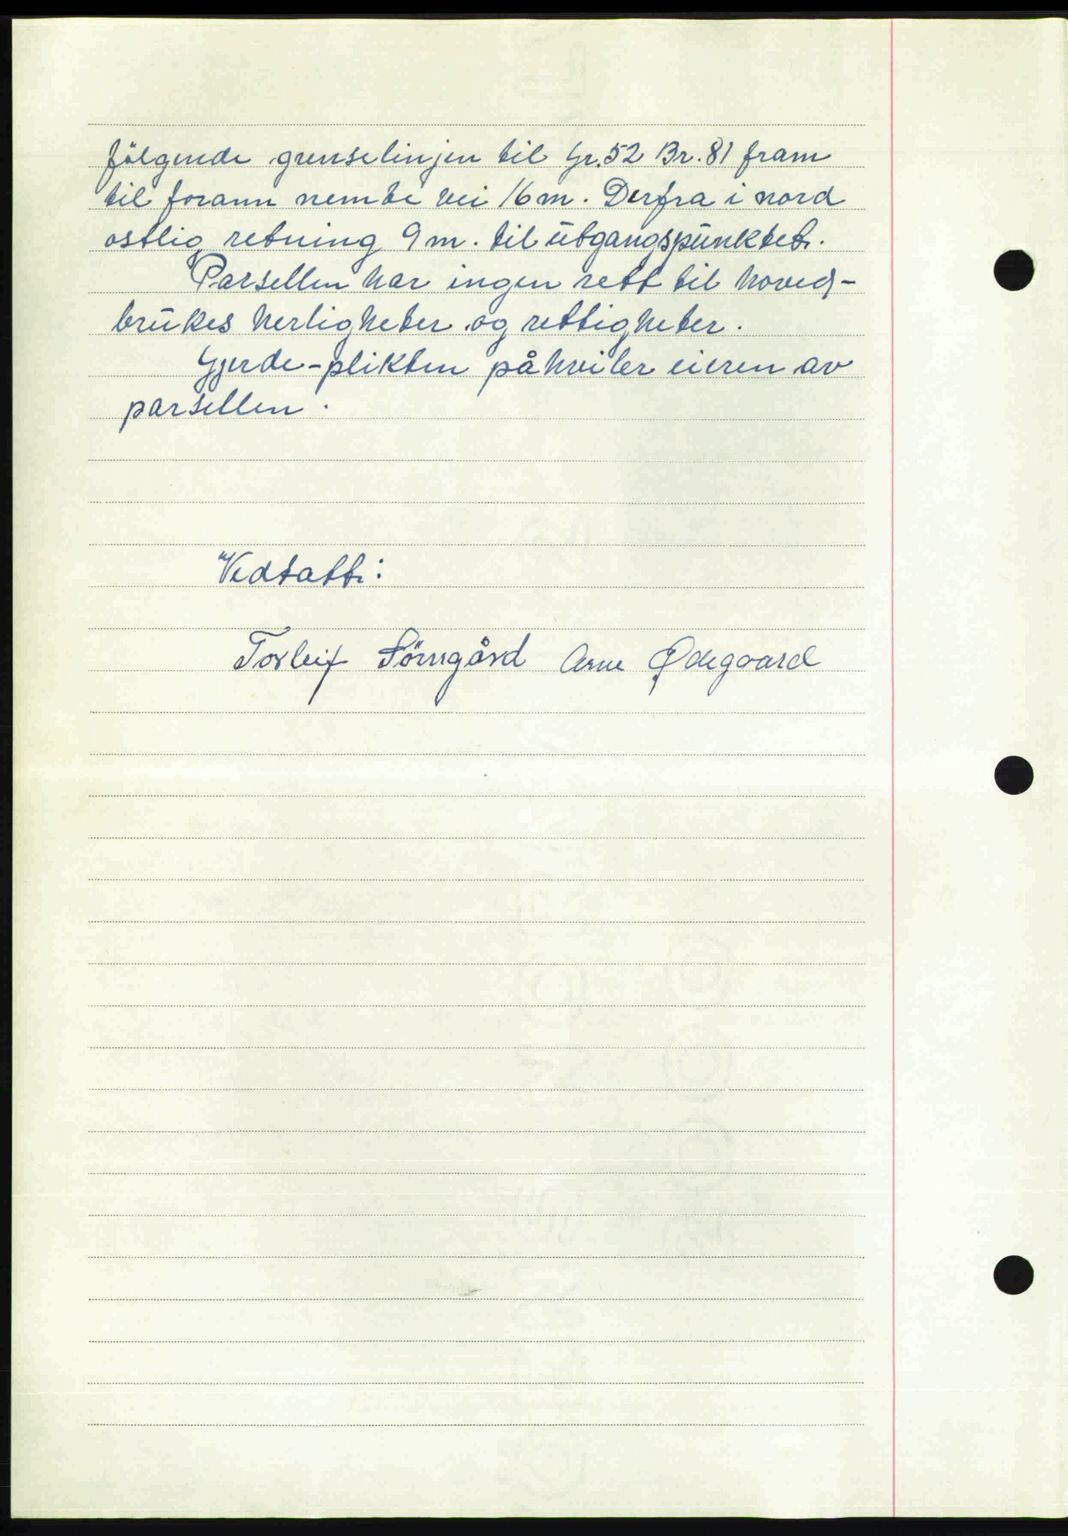 følgende grenselinjen til Gr. 52 Br. 81 fram
til forann nemte vei 16 m. Derfra i nord
ostlig retning 9 m. til utgangspunktet.
Parsellen har ingen rett til hoved-
brukes herligheter og rettigheter.
Gjerde-plikten påhviler eieren av
parsellen.
Vedtatt:
Torleif Sörngård Arne Ødegaard